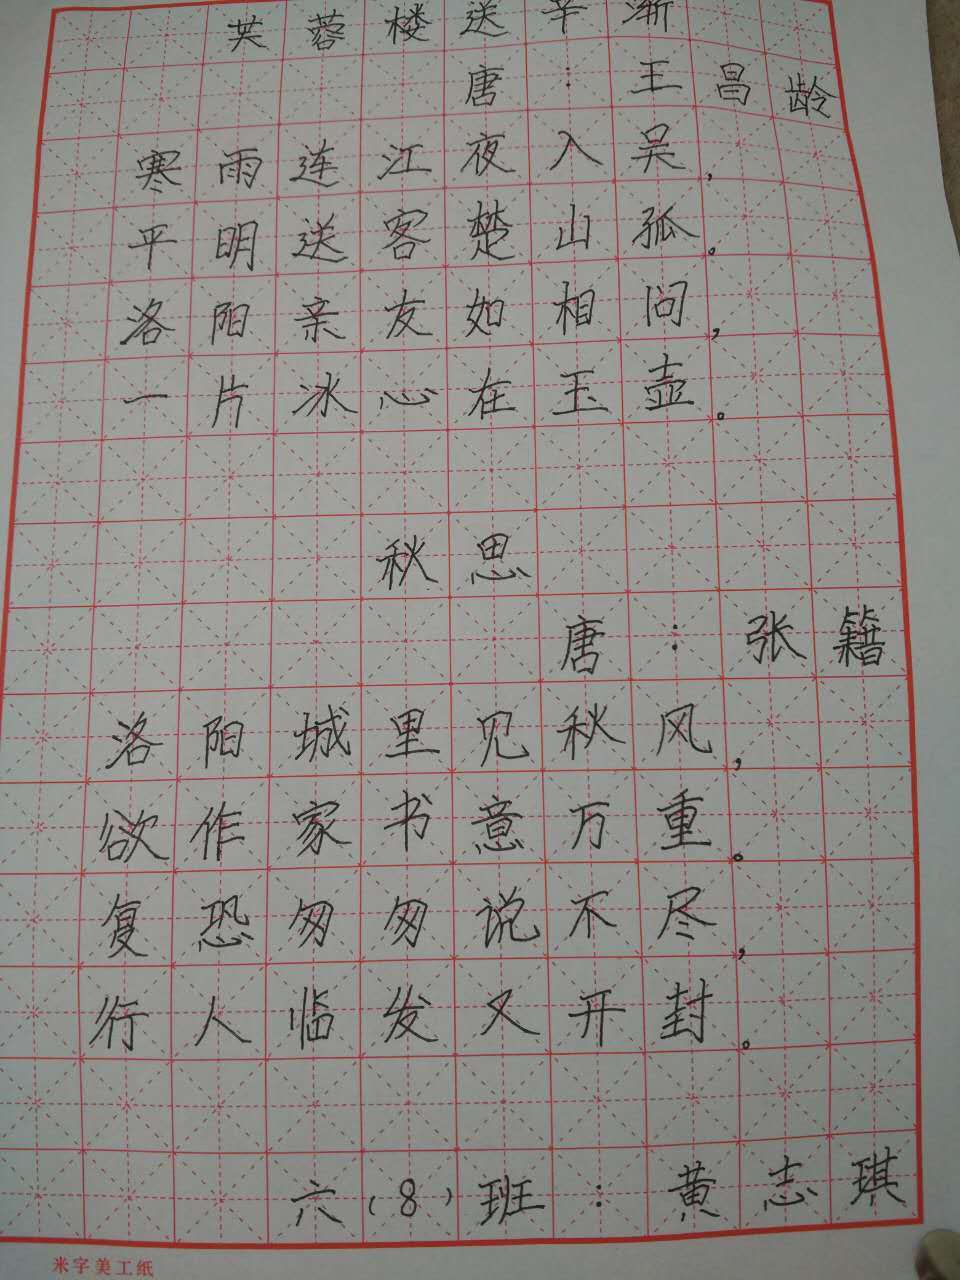 芙蓉楼送辛渐
唐：王昌龄
寒雨连江夜入吴，
平明送客楚山孤。
洛阳亲友如相问，
一片冰心在玉壶。
秋思
唐：张籍
洛阳城里见秋风，
欲作家书意万重。
复恐匆匆说不尽，
行人临发又开封。
六（8）班：黄志琪
米字美工纸